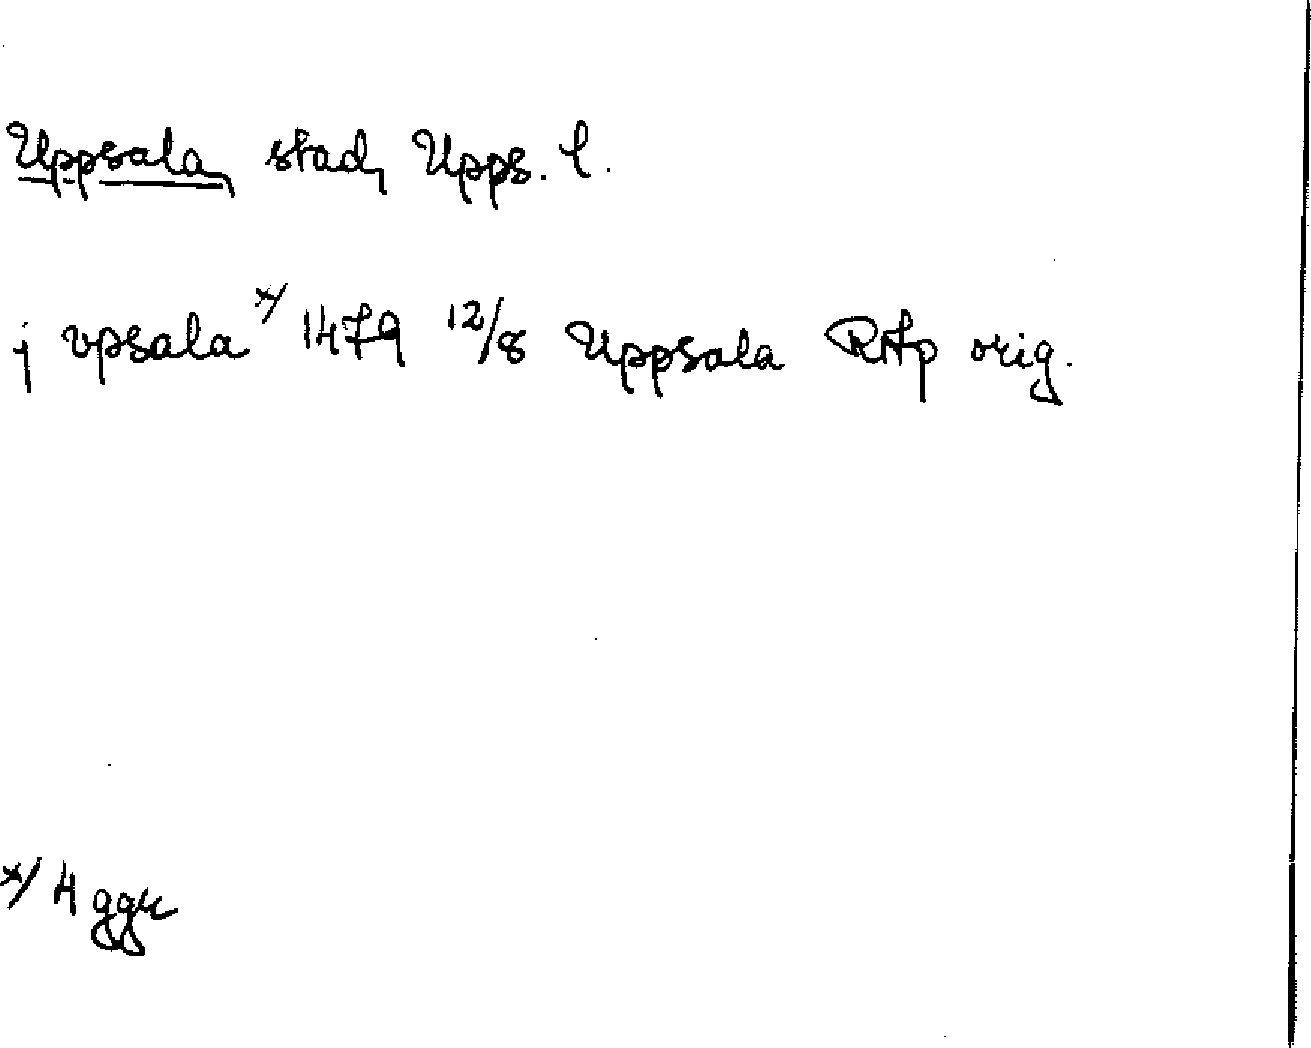 Uppsala, stad, Upps. l.
j vpsala x/ 1479 12/8 Uppsala RAp orig.
x/ 4 ggr